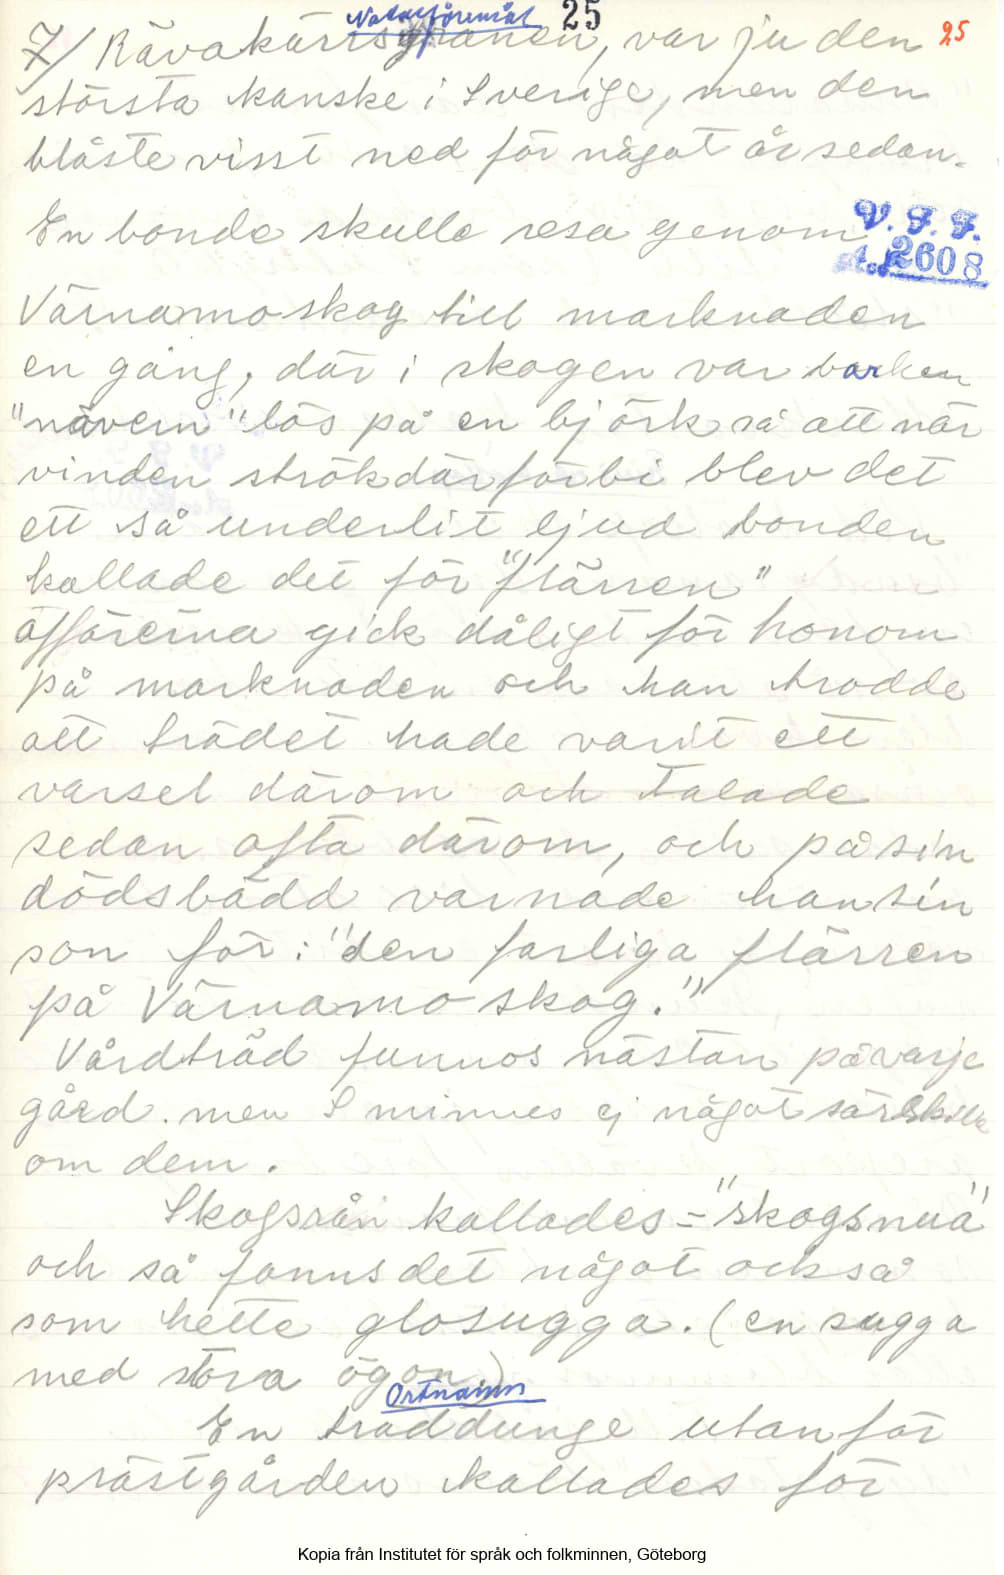 Naturföremål 25
7/ Rävakärrsgranen, var ju den 25
största kanske i Sverige, men den
blåste visst ned för något år sedan.
En bonde skulle resa genom
V. F. F.
2608
Värnamo skog till marknaden
en gång, där i skogen var barken
"nävern" lös på en björk så att när
vinden strök där förbi blev det
ett så underlit ljud bonden
kallade det för "flärren"
affärerna gick dåligt för honom
på marknaden och han trodde
att trädet hade varit ett
varsel därom och talade
sedan ofta därom, och på sin
dödsbädd varnade han sin
son för: "den farliga flärren
på Värnamo skog."
Vårdträd funnos nästan på varje
gård. men S minnes ej något särskilt
om dem.
Skogsrån kallades = "skogsnua"
och så fanns det något också
som hette glosugga. (en sugga
med stora ögon)
Ortnamn
En träddunge utanför
prästgården kallades för
Kopia från Institutet för språk och folkminnen, Göteborg